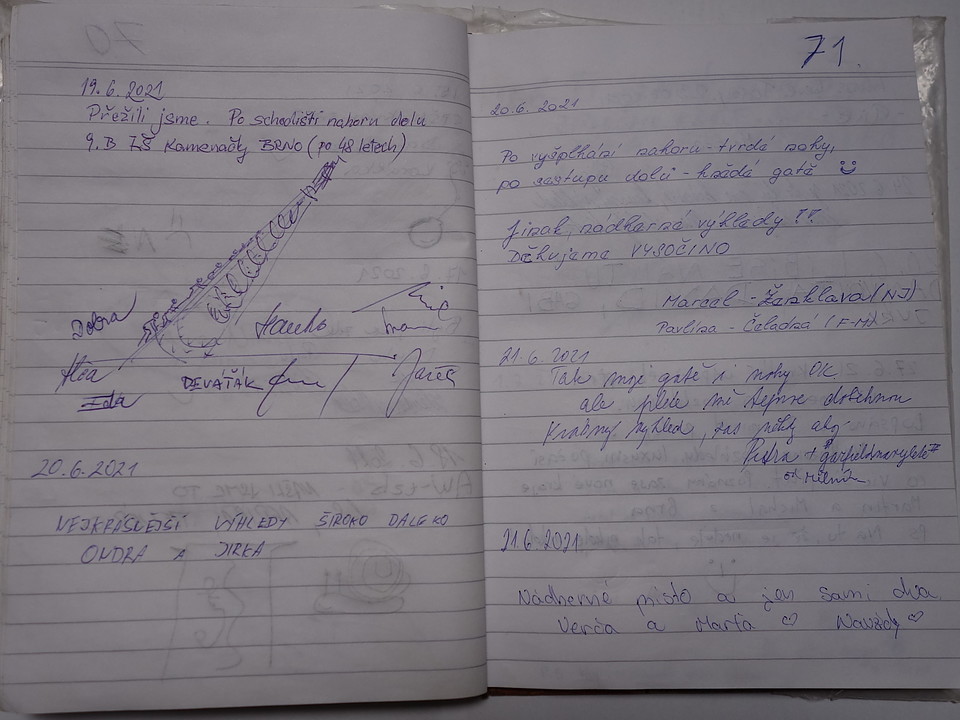 19.6.2021
Přežili jsme. Po schodišti nahoru dolu
9.B ZŠ Kamenačky BRNO (po 48 letech)
Dobra
Hanka
Ivana
Alča
DEVAŤÁK
Eda
20.6.2021
NEJKRÁSNĚJŠÍ VÝHLEDY ŠIROKO DALEKO
ONDRA A JIRKA
71.
20.6.2021
Po vyšplhání nahoru - tvrdé nohy,
po sestupu dolů - hnědé gatě
Jinak, nádherné výhledy !!
Děkujeme VYSOČINO
Marcel - Ženklava (NJ)
Pavlína - Čeladná (F-M)
21.6.2021
Tak moje gatě i nohy OK.
ale mě teprve doběhnou
Krásný výhled, zas někdy ahoj
Petra +
od Mělník
21.6.2021
Nádherné místo a jen sami dva.
Verča a Marťa ♡ Navždy ♡